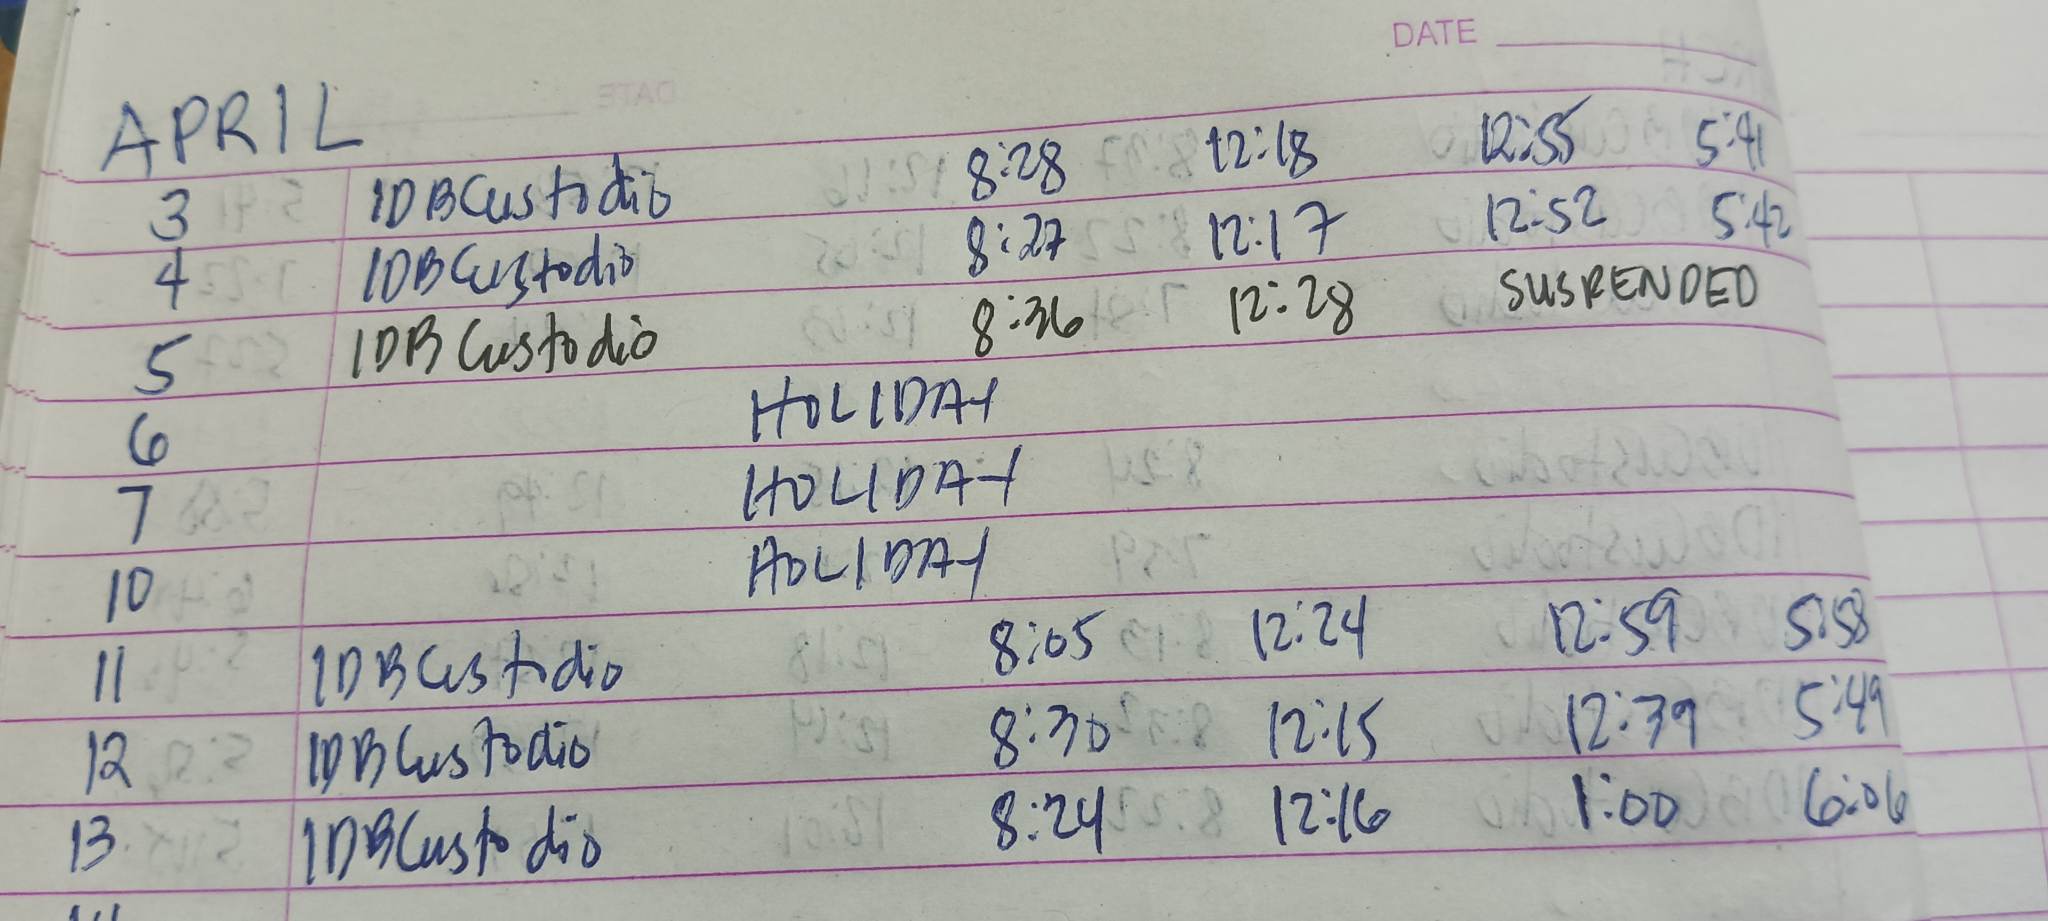 DATE
APRIL
3 IDBCustodio 8:28 12:18 12:55 5:41
4 IDBCustodio 8:27 12:17 12:52 5:42
5 IDBCustodio 8:36 12:28 SUSPENDED
6 HOLIDAY
7 HOLIDAY
10 HOLIDAY
11 IDBCustodio 8:05 12:24 12:59 5:58
12 IDBCustodio 8:30 12:15 12:39 5:49
13 IDBCustodio 8:24 12:16 1:00 6:06